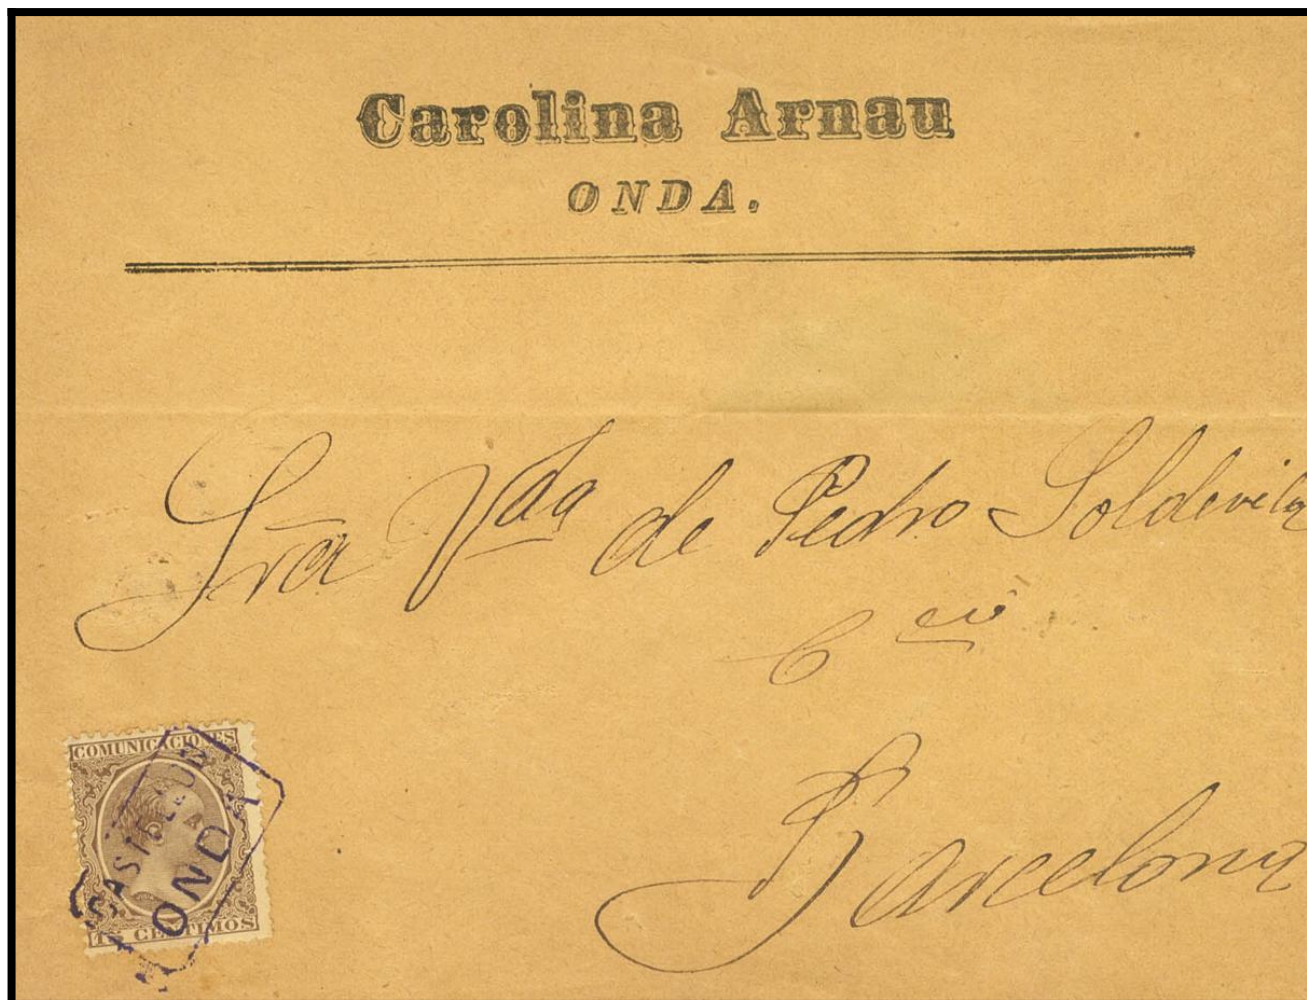 Carolina Arnau
ONDA.
Sra Vda de Pedro Soldevila
Barcelona
COMUNICACIONES
ONDA
15 CENTIMOS